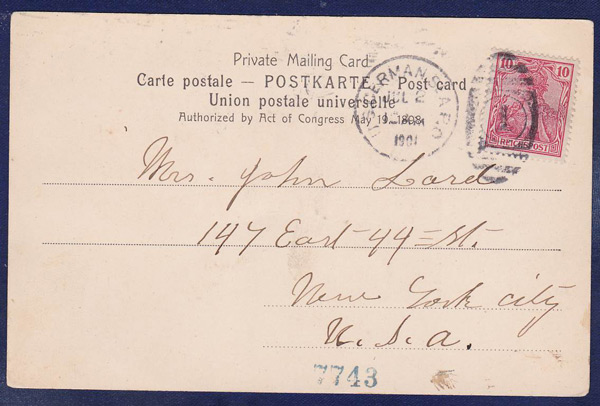 Private Mailing Card
Carte postale — POSTKARTE — Post card
Union postale universelle
Authorized by Act of Congress May 19, 1898
U.S. GERMAN SEAPO
JUL 2
1901
10 10
REICHSPOST
1
Mrs. John Lord
147 East 44 = St.
New York city
U.S.A.
7743